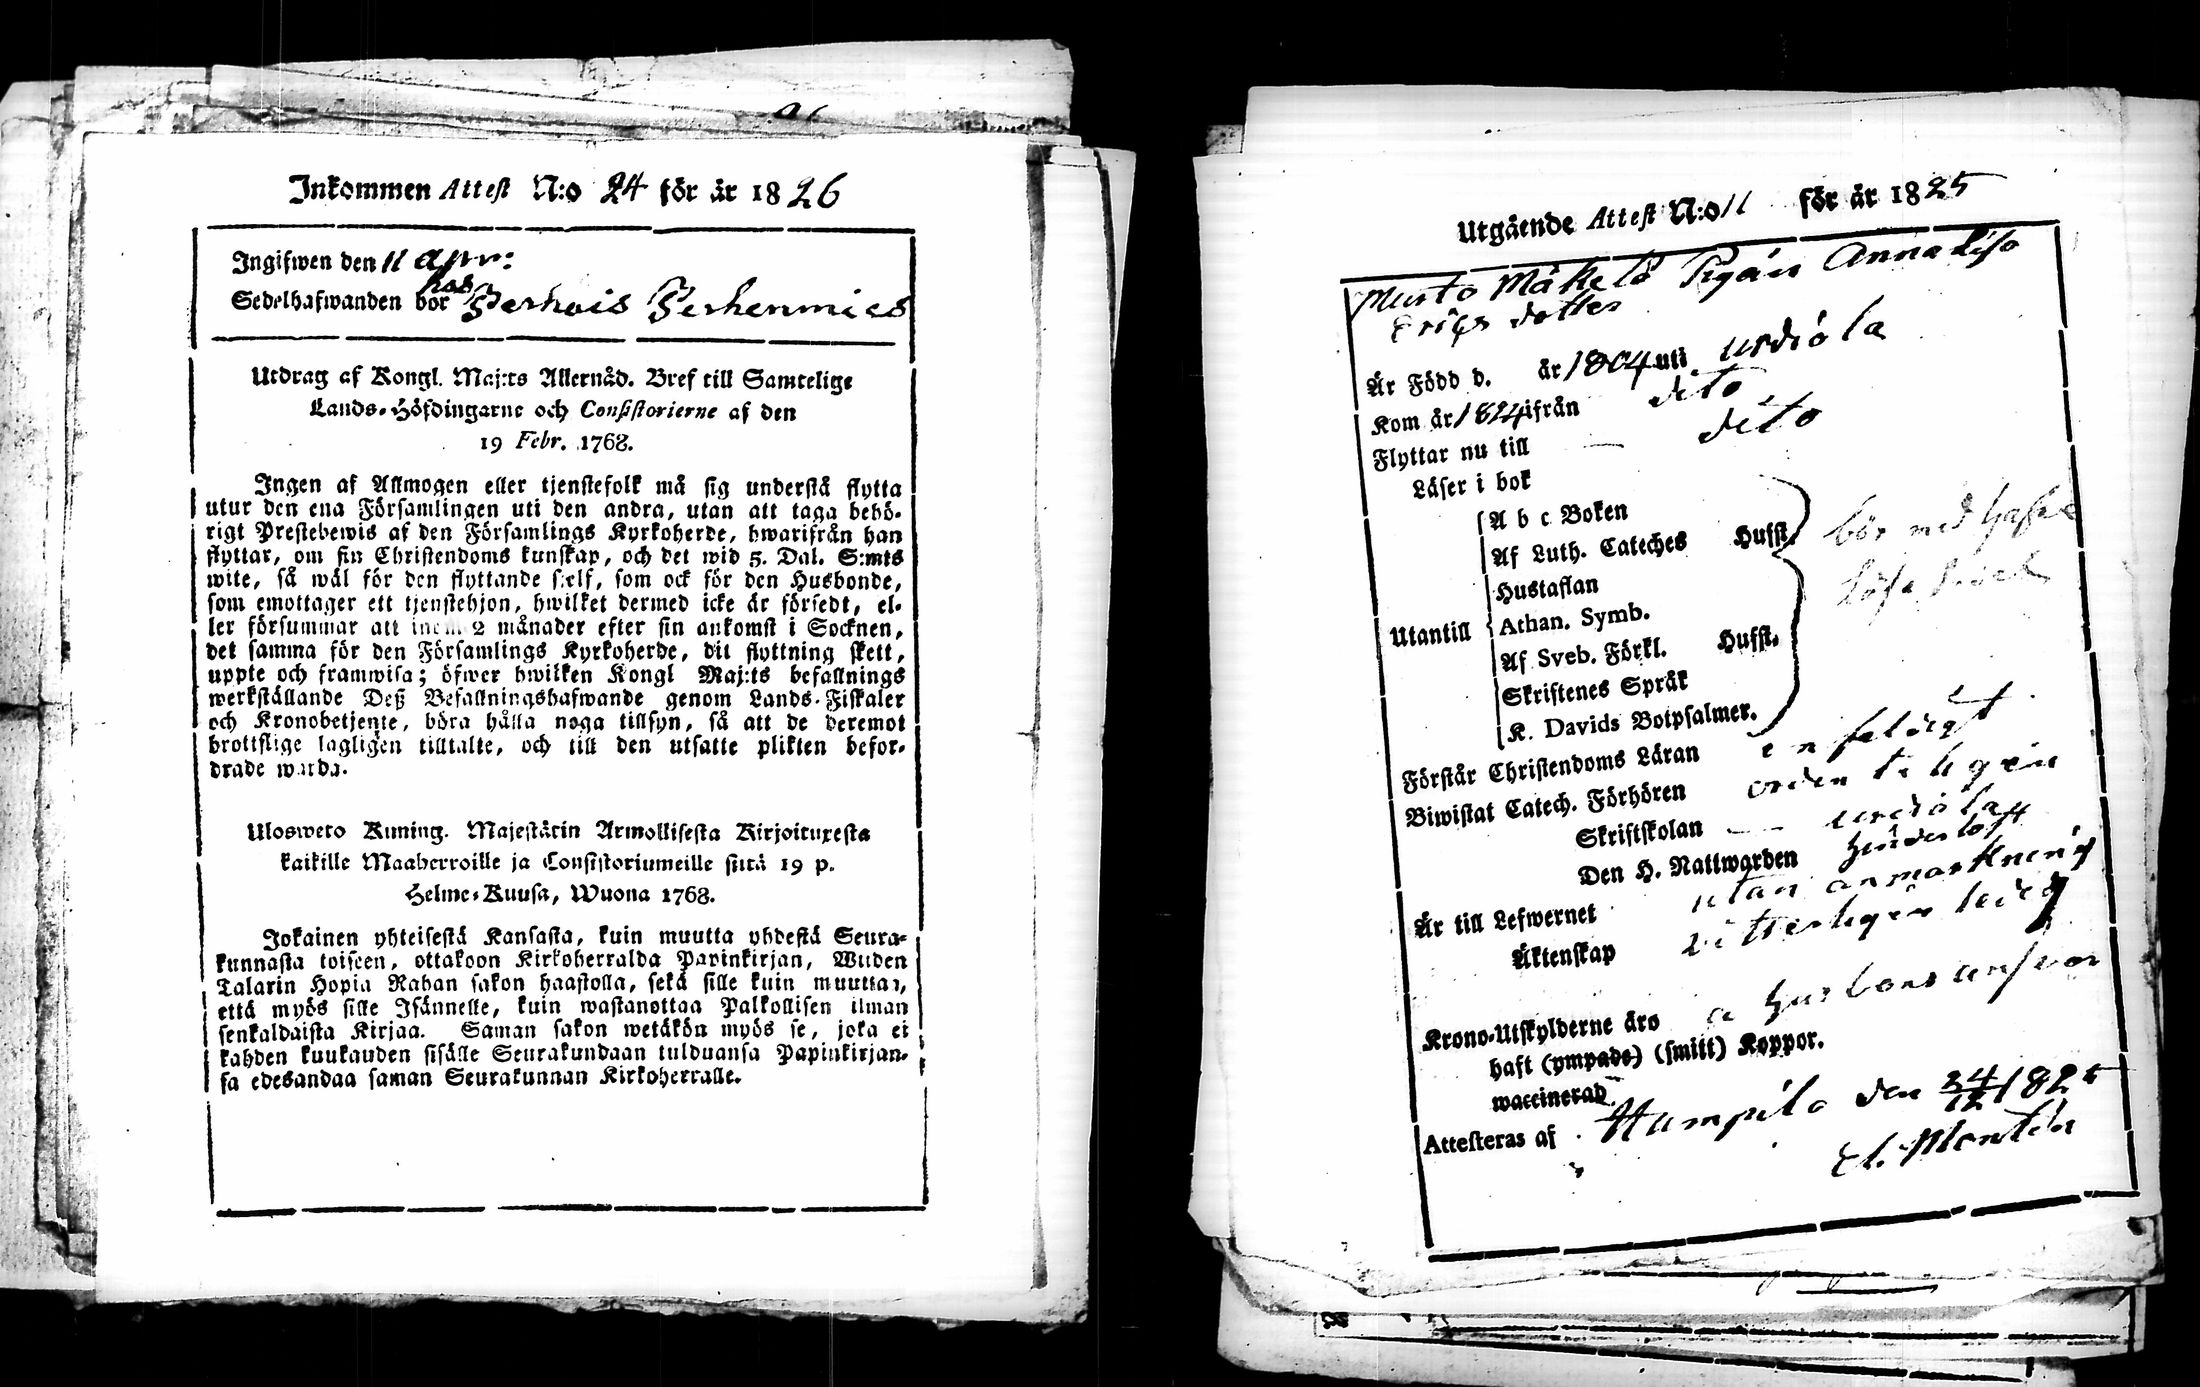 Inkommen Attest N:o 24 för år 1826
Ingifwen den 11 Apr:
hos
Sedelhafwanden bor
Utdrag af Kongl. Maj:ts Allernåd. Bref till Samtelige
Lands-Höfdingarne och Consistorierne af den
19 Febr. 1768.
Ingen af Allmogen eller tjenstefolk må sig understå flytta
utur den ena Församlingen uti den andra, utan att taga behö-
rigt Prestebewis af den Församlings Kyrkoherde, hwarifrån han
flyttar, om sin Christendoms kunskap, och det wid 5. Dal. S:mts
wite, så wäl för den flyttande sjelf, som ock för den Husbonde,
som emottager ett tjenstehjon, hwilket dermed icke är försedt, el-
ler försummar att inom 2 månader efter sin ankomst i Socknen,
det samma för den Församlings Kyrkoherde, dit flyttning skett,
uppte och framwisa; öfwer hwilken Kongl Maj:ts befallnings
werkställande Deß Befallningshafwande genom Lands-Fiskaler
och Kronobetjente, böra hålla noga tillsyn, så att de deremot
brottslige lagligen tilltalte, och till den utsatte plikten befor-
drade warda.
Ulosweto Kuning. Majestätin Armollisesta Kirjoituxesta
kaikille Maaherroille ja Consistoriumeille siitä 19 p.
Helme-Kuusa, Wuona 1768.
Jokainen yhteisestä Kansasta, kuin muutta yhdestä Seura-
kunnasta toiseen, ottakoon Kirkoherralda Papinkirjan, Wiiden
Talarin Hopia Rahan sakon haastolla, sekä sille kuin muuttaa,
että myös sille Isännelle, kuin wastanottaa Palkollisen ilman
senkaldaista Kirjaa. Saman sakon wetäkön myös se, joka ei
kahden kuukauden sisälle Seurakundaan tulduansa Papinkirjan-
sa edesandaa saman Seurakunnan Kirkoherralle.
Utgående Attest N:o 11 för år 1825
Murto Mäkelä Pigan Anna Lisa
Erichs dotter
Är Född d. år 1804 uti urdiala
Kom år 1824 ifrån dito
Flyttar nu till dito
Läser i bok
A b c Boken
Af Luth. Cateches Husst.
Hustaflan
Utantill Athan. Symb.
Af Sveb. Förkl. Husst.
Skriftenes Språk
K. Davids Botpsalmer.
Förstår Christendoms Läran enfaldigt
Biwistat Catech. Förhören ordenteligen
Skriftskolan urdiala
Den H. Nattwarden
Är till Lefwernet utan anmärkning
Äktenskap witterligen ledig
Krono-Utskylderne äro a husbons answar
haft (ympade) (smitt) Koppor.
waccinerad
Attesteras af Humpila den 24/12 1825